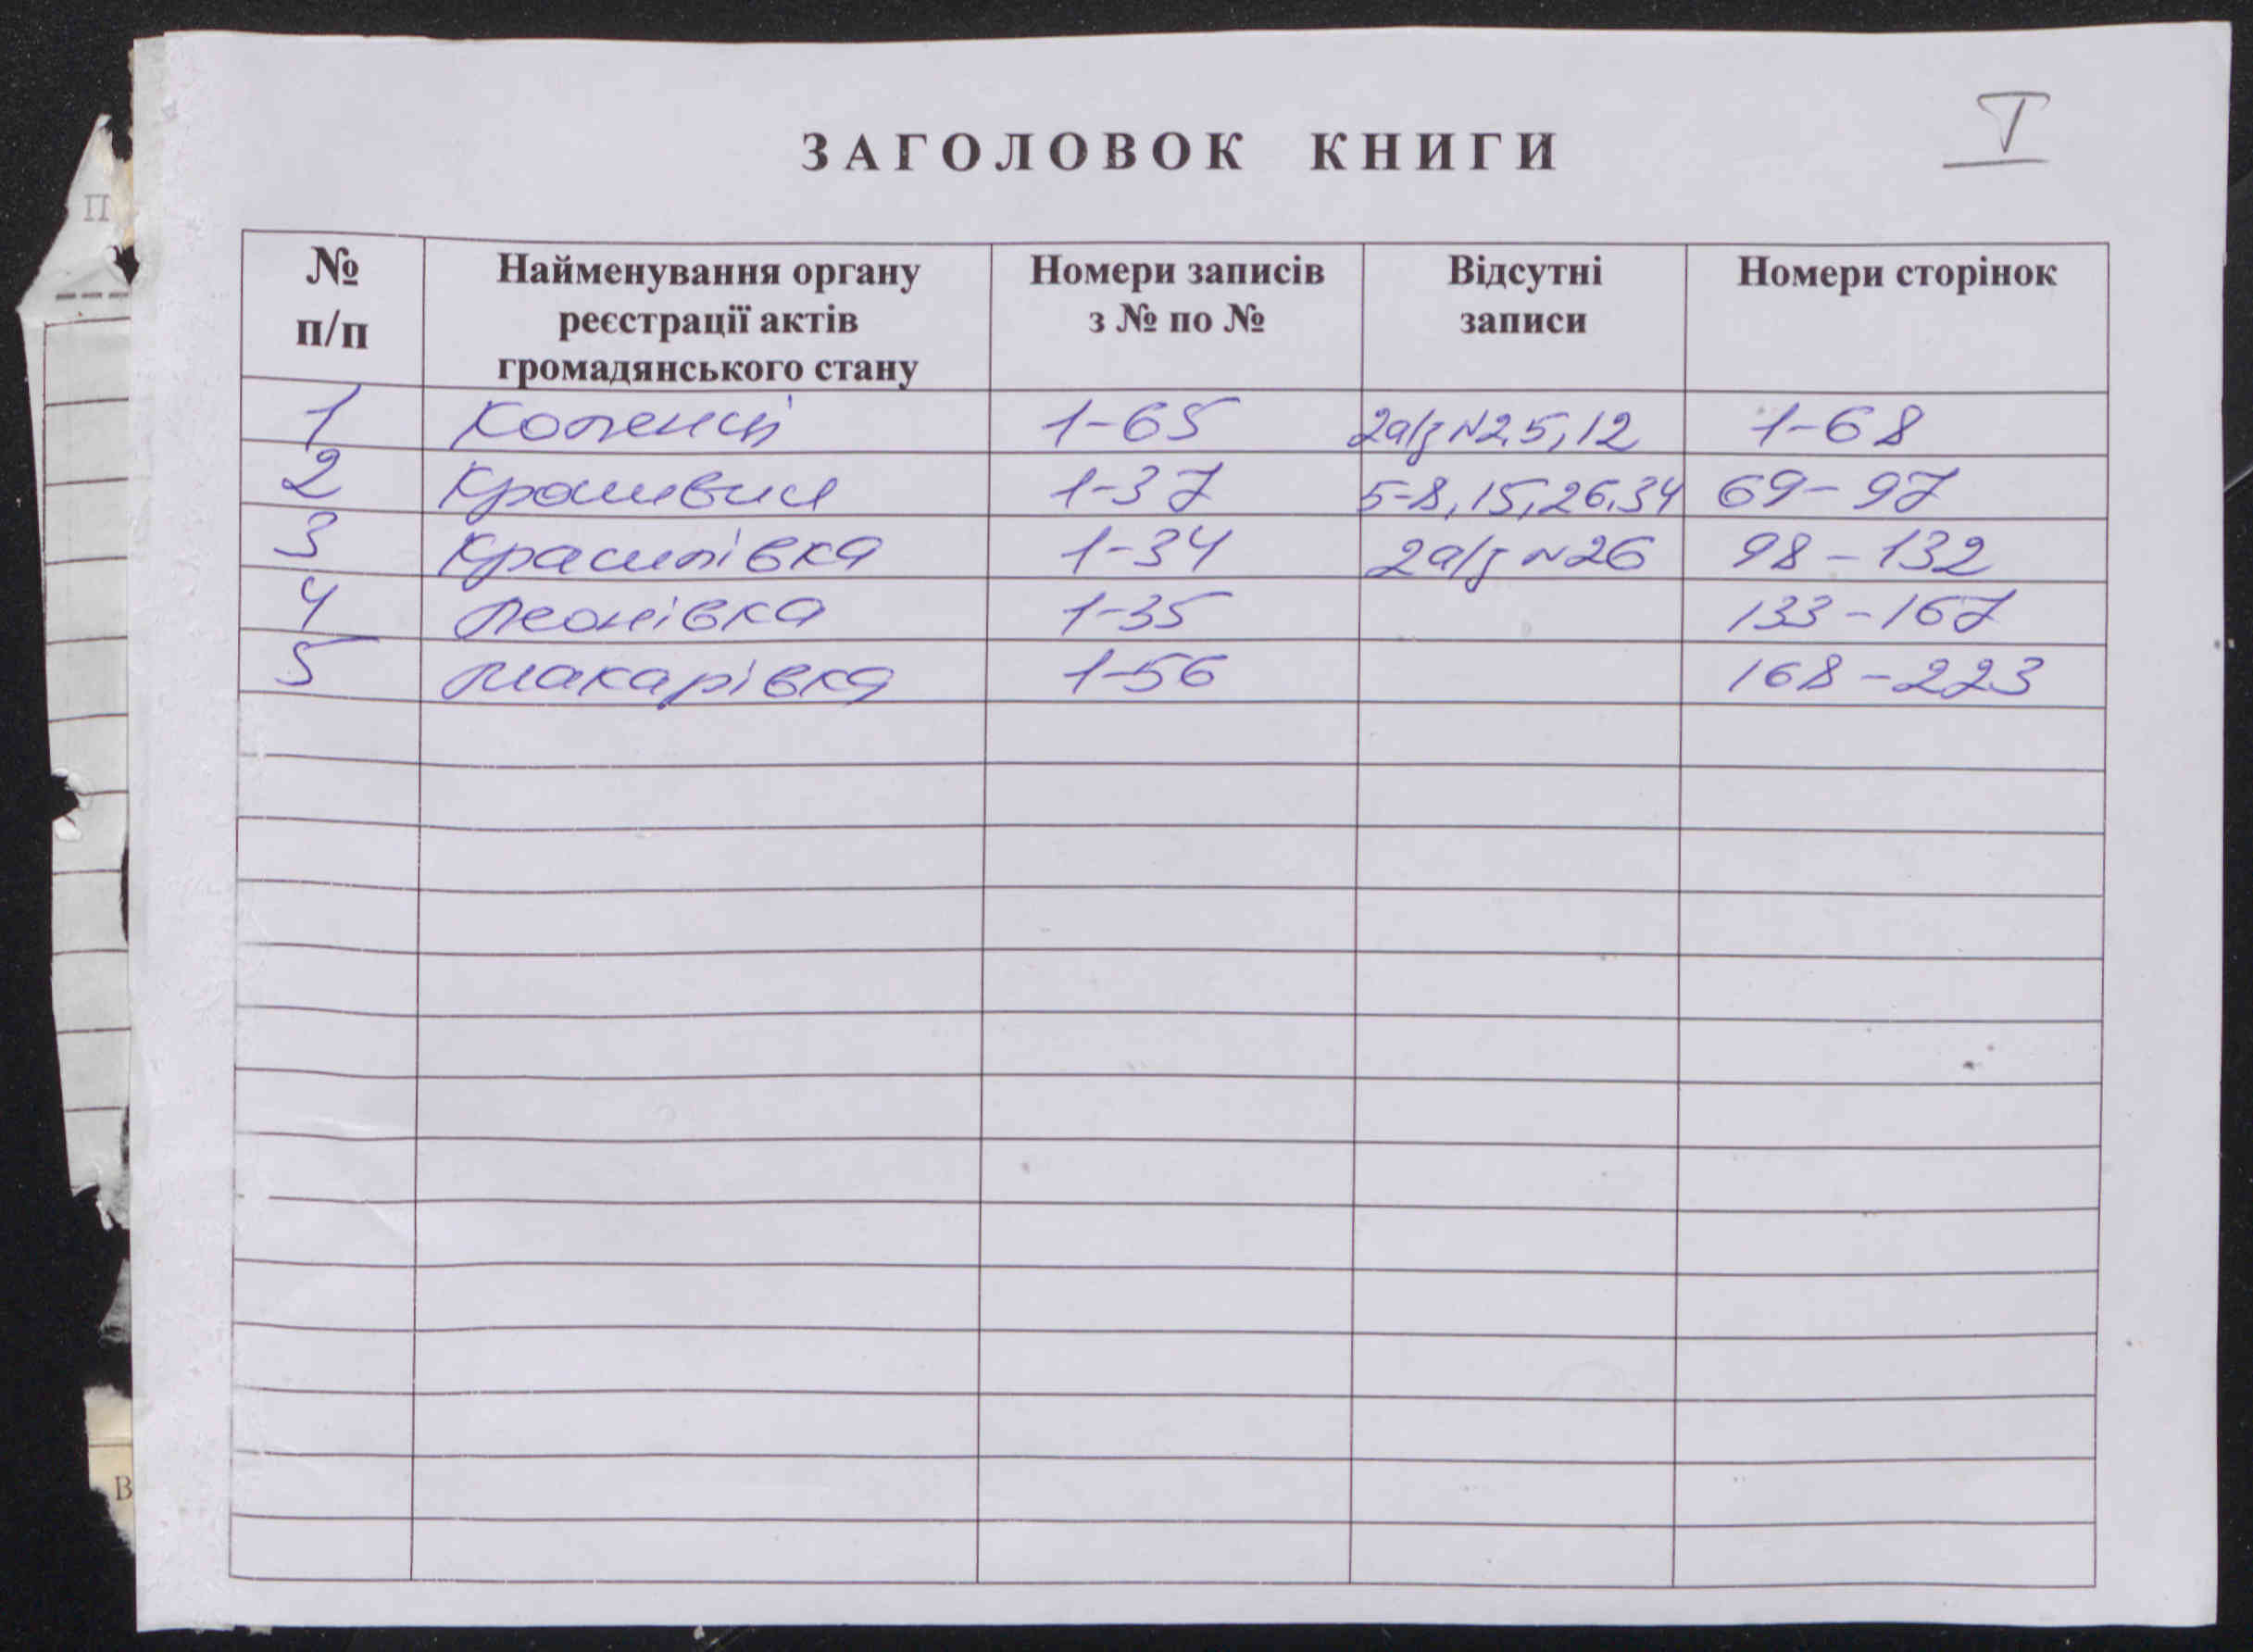 I
ЗАГОЛОВОК КНИГИ
№ п/п Найменування органу реєстрації актів громадянського стану Номери записів з № по № Відсутні записи Номери сторінок
1 Копенці 1-65 2а/з N2,5,12 1-68
2 1-37 5-8,15,26,34 69-97
3 Красилівка 1-34 2а/з N26 98-132
4 Леонівка 1-35 133-167
5 Макарівка 1-56 168-223
П
В